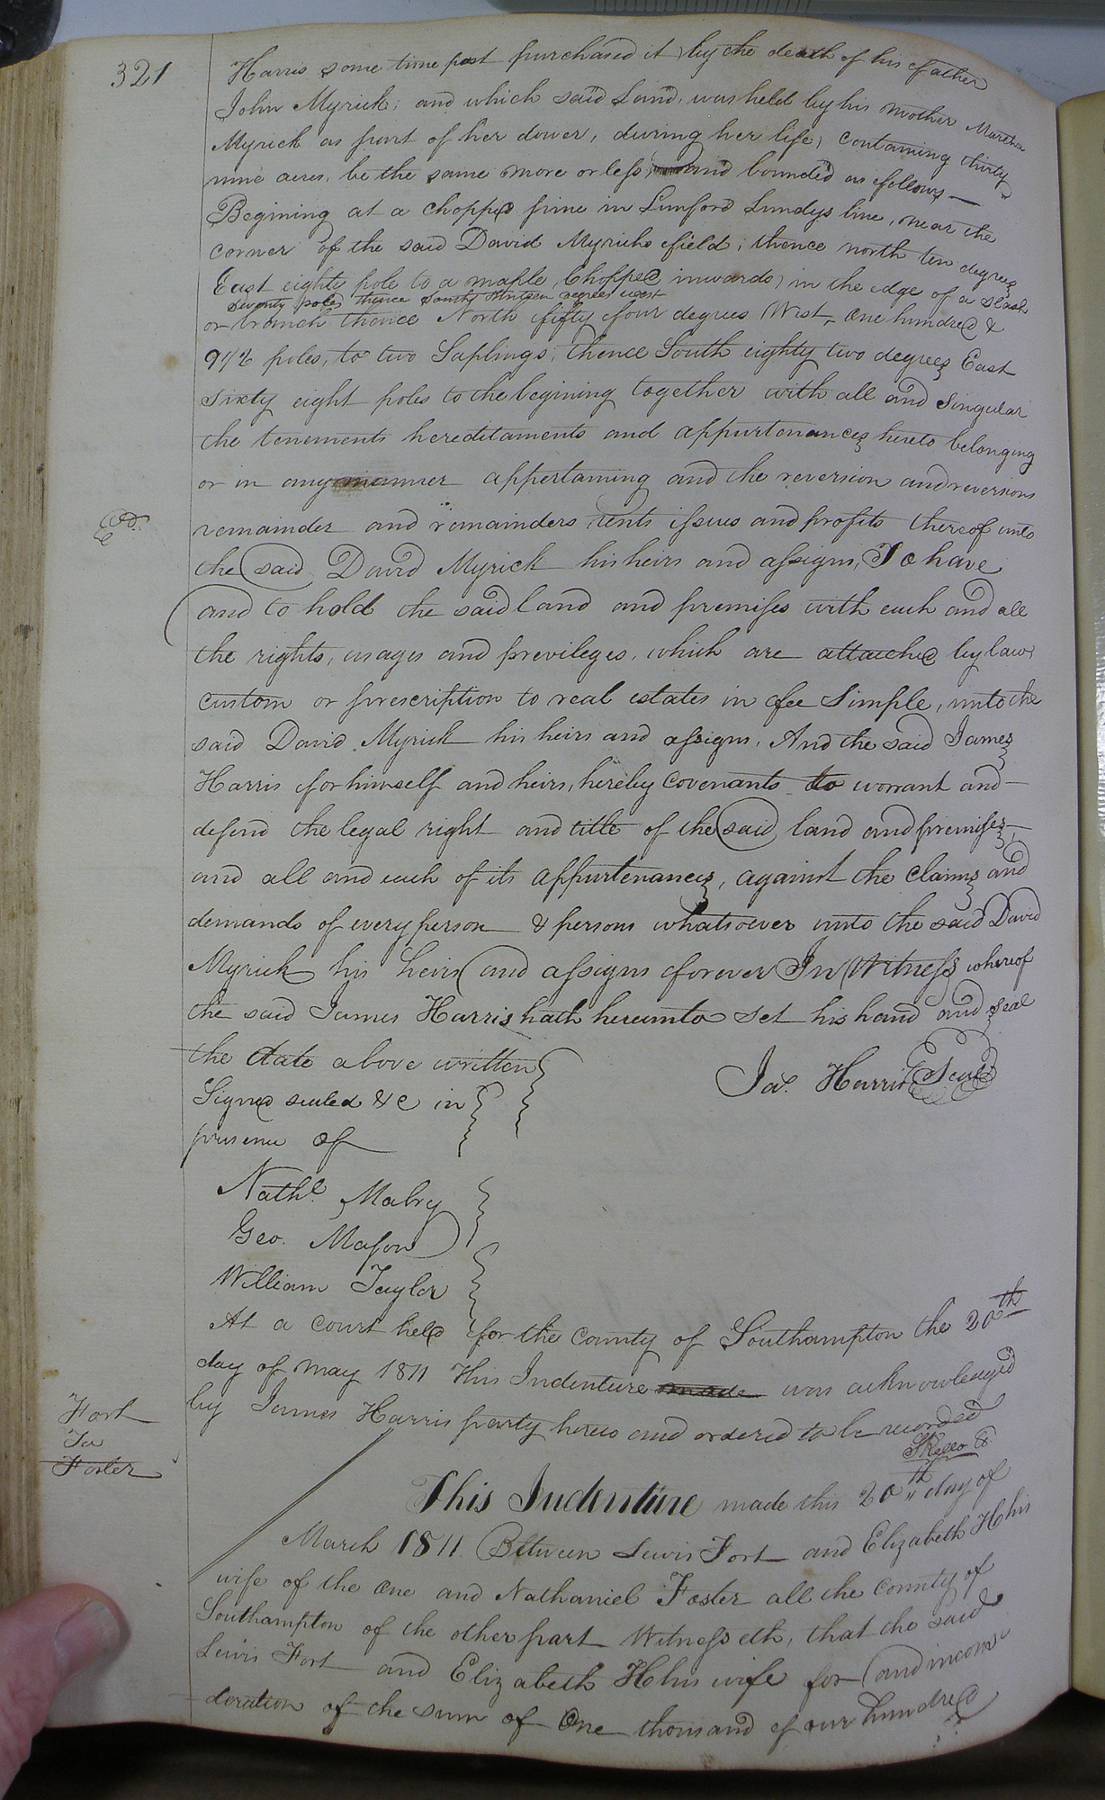 321
Harris some time past purchased it) by the death of his father
John Myrick; and which said Land, was held by his mother Martha
Myrick as part of her dower, during her life, containing thirty
nine acres. be the same more or less, and bounded as follows —
Begining at a chopped pine in Lunford Lundys line, near the
corner of the said David Myricks field; thence north ten degrees
East eighty pole to a maple, Chopped inwards, in the edge of a slash
seventy poles thence South degrees west
or branch thence North fifty four degrees West, one hundred &
9 1/2 poles, to two Saplings, thence South eighty two degrees East
sixty eight poles to the begining together with all and Singular
the tenements hereditaments and appurtenances hereto belonging
or in any manner appertaining and the reversion and reversions
remainder and remainders, rents issues and profits thereof unto
Ex.d.
the said David Myrick his heirs and assigns, To have
and to hold the said land and premises with each and all
the rights, usages and previleges, which are attached by law,
custom or prescription to real estates in fee Simple, unto the
said David Myrick his heirs and assigns. And the said James
Harris for himself and heirs, hereby covenants to warrant and —
defend the legal right and title of the said land and premises, —
and all and each of its appurtenances, against the claims and
demands of every person & persons whatsoever unto the said David
Myrick his heirs and assigns forever In Witness whereof
the said James Harris hath hereunto set his hand and seal
the date above written
Jas. Harris Seal
Signed sealed &c in
presence of
Nathl. Mabry
Geo. Mason
William Taylor
At a court held for the County of Southampton the 20th
day of may 1811 This Indenture made was acknowledged
by James Harris party hereto and ordered to be recorded
Fort
To
Foster
This Indenture made this 20th day of
March 1811 Between Lewis Fort and Elizabeth H his
wife of the one and Nathaniel Foster all the county of
Southampton of the other part Witnesseth, that the said
Lewis Fort and Elizabeth H his wife for and in consi
deration of the sum of One thousand four hundred